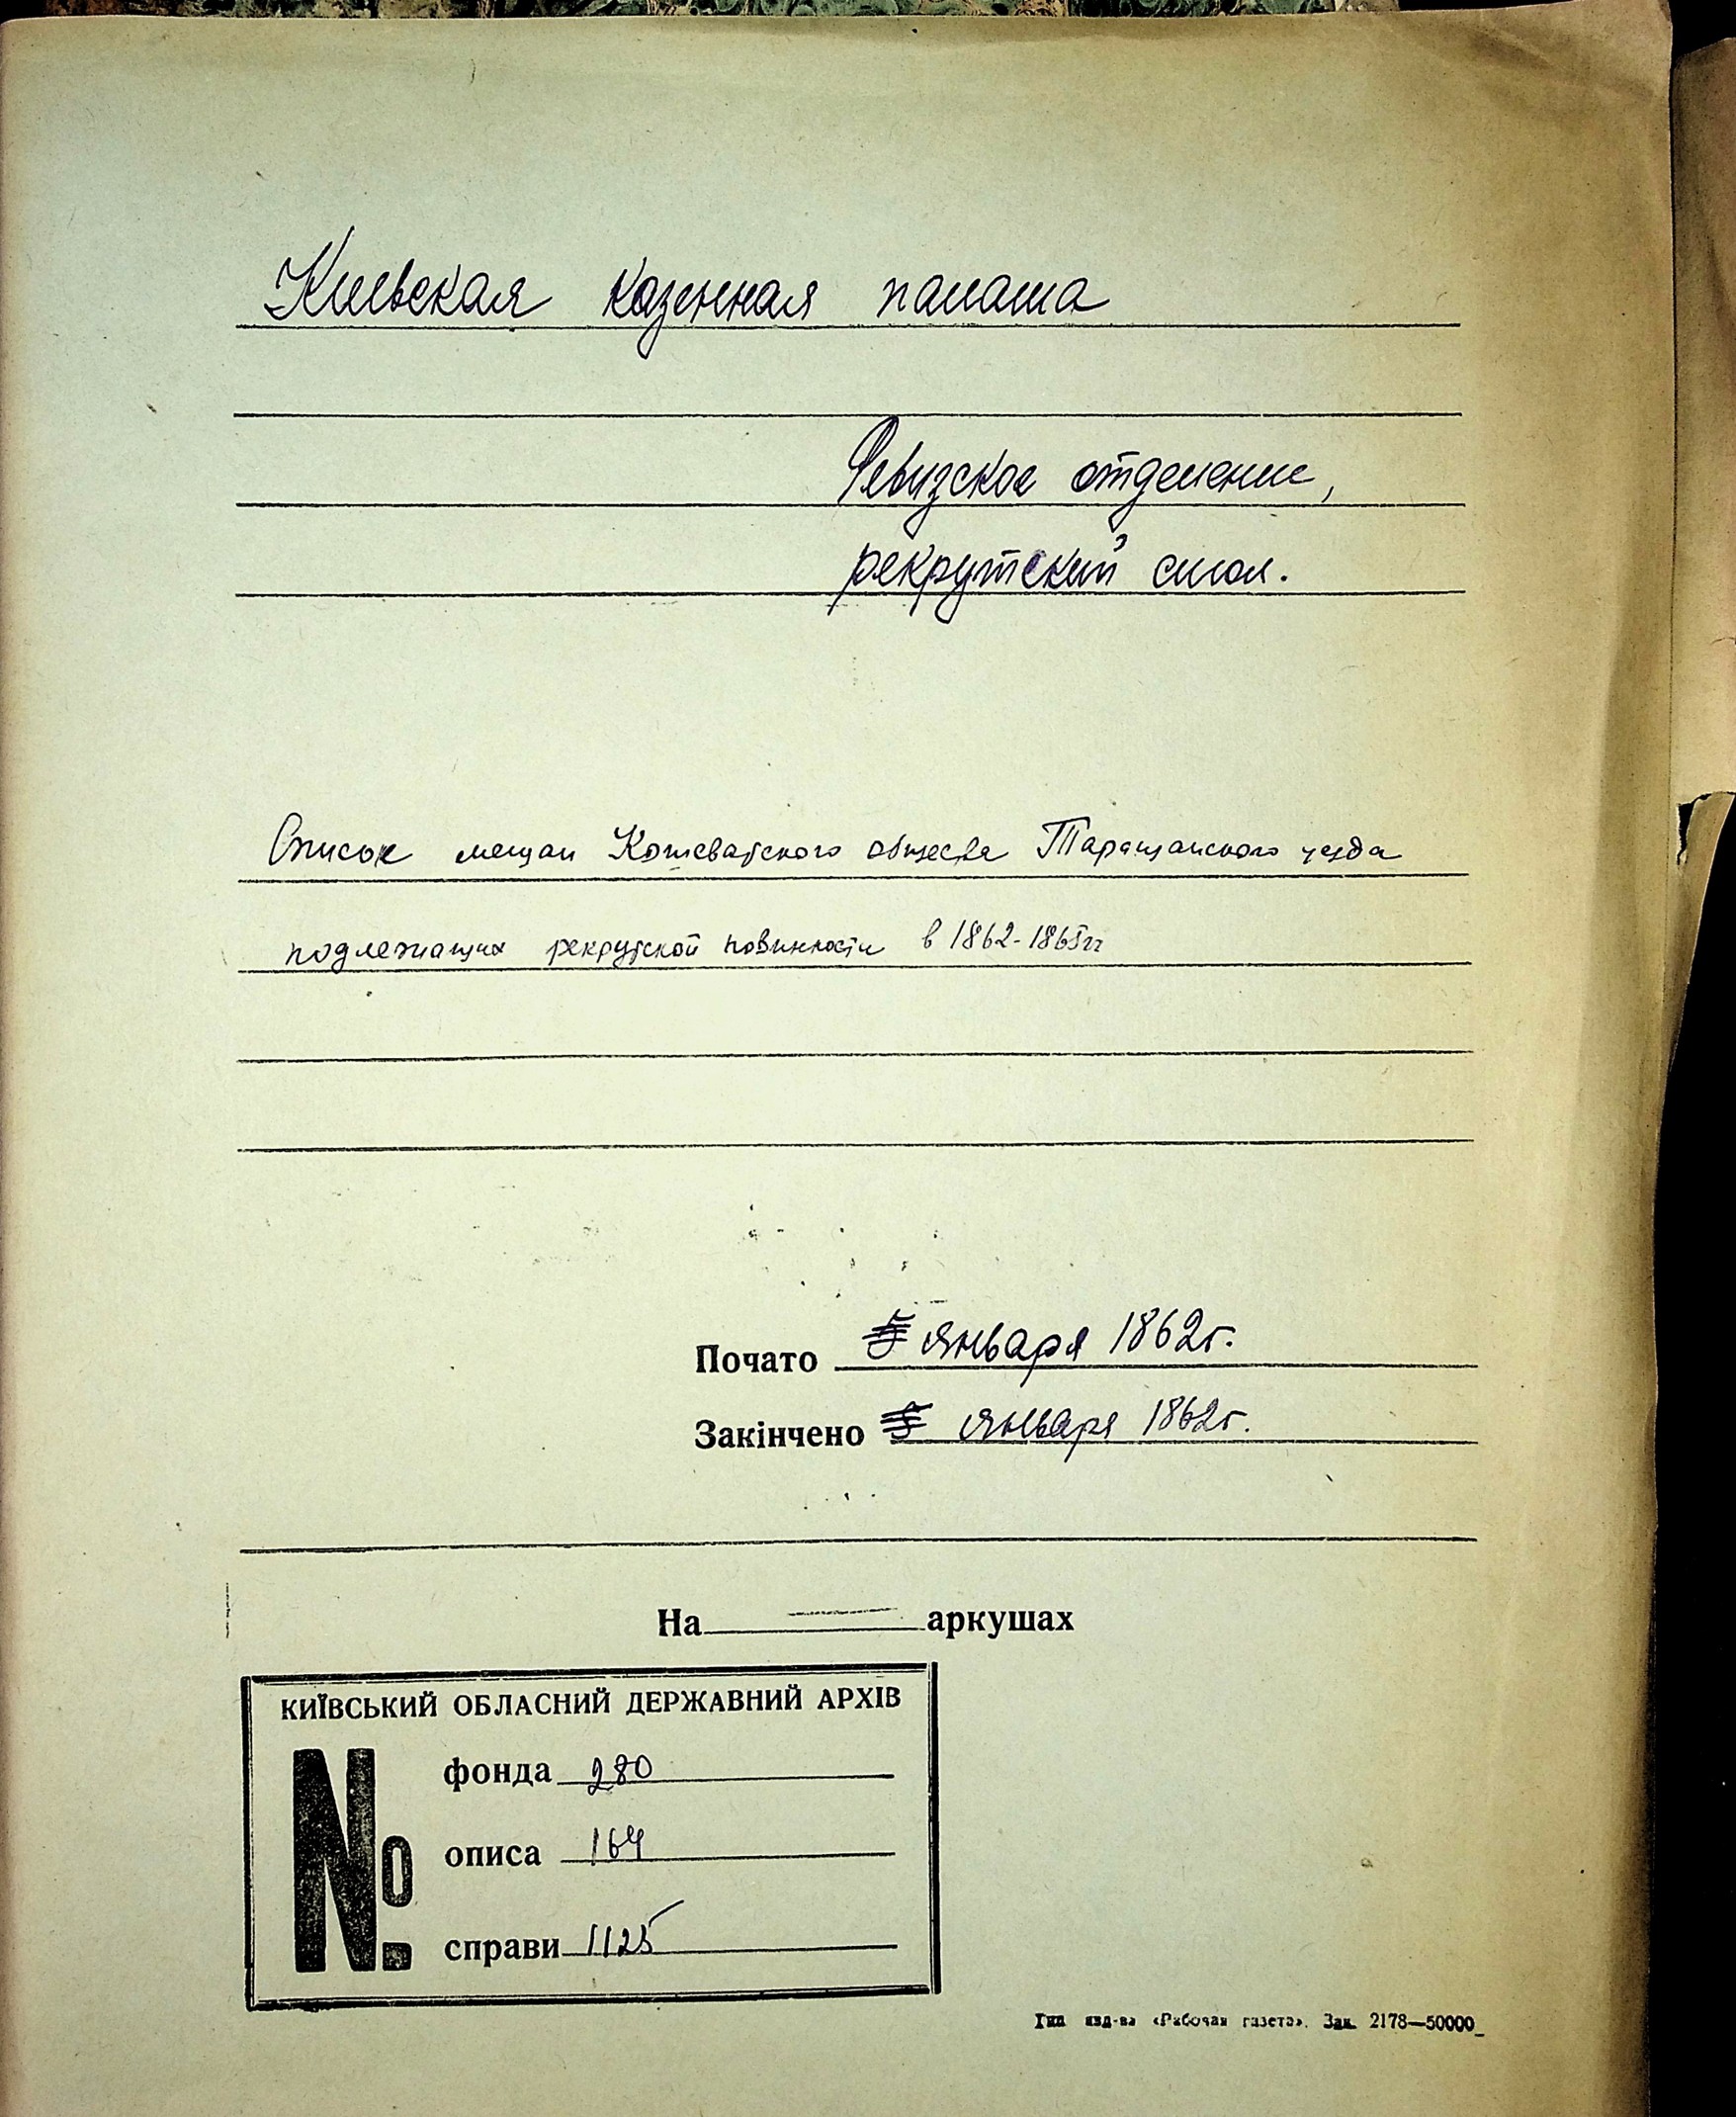 Киевская казенная палата
Ревизское отделение,
рекрутский стол.
Список мещан Кошеватского общества Таращанского уезда
подлежащих рекрутской повинности в 1862-1865гг
Почато января 1862г.
Закінчено января 1862г.
На аркушах
КИЇВСЬКИЙ ОБЛАСНИЙ ДЕРЖАВНИЙ АРХІВ
№
фонда 280
описа 164
справи 1125
Тип изд-ва «Рабочая газета». Зак. 2178—50000